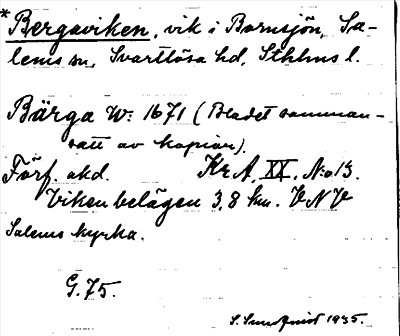 *Bergaviken, vik i Bornsjön, Sa-
lems sn, Svartlösa hd, Sthlms l.
Bärga W: 1671 (Bladet samman-
satt av kopior).
Förf. okd. Kr A, XX, No 13.
Viken belägen 3,8 km. VNV
Salems kyrka.
G. 75.
S. Sundquist 1935.